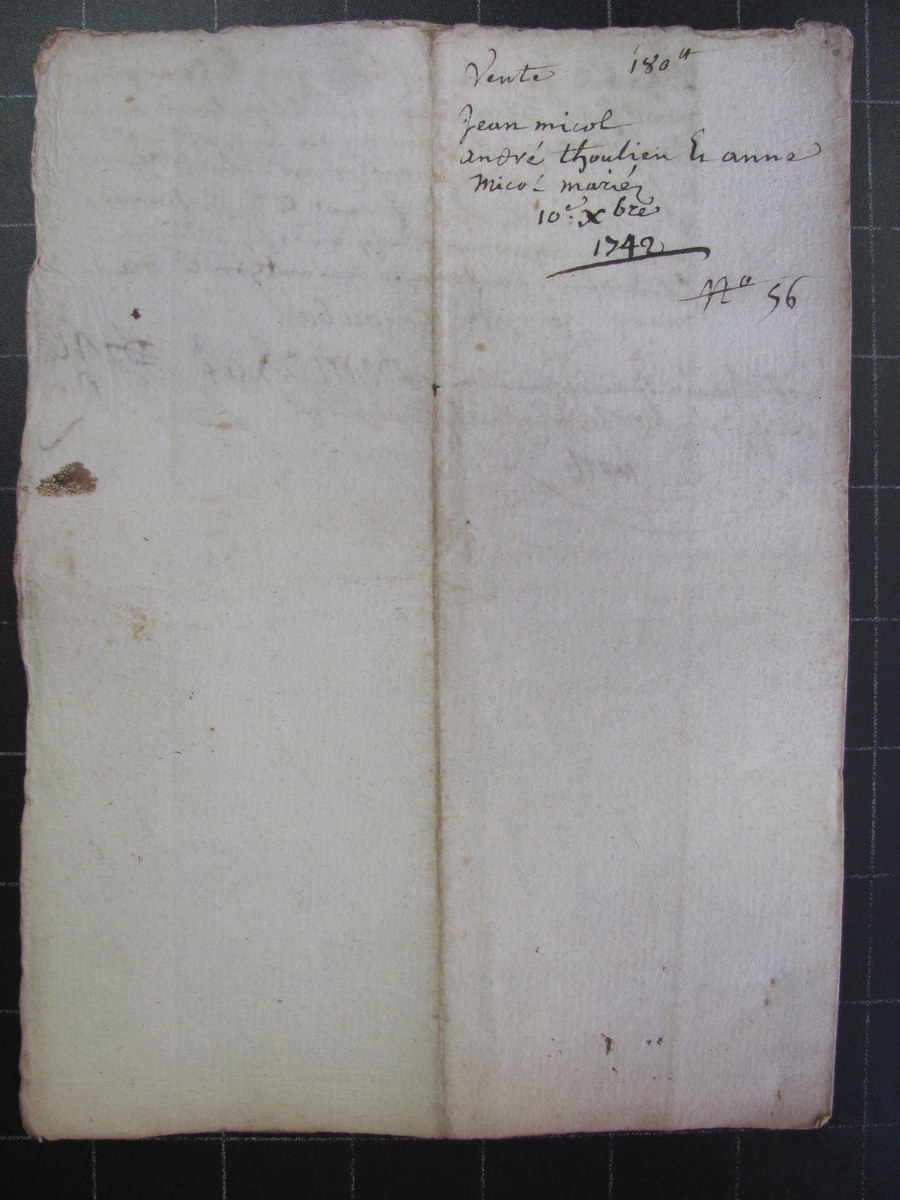 Vente 180tt
Jean micol
andré thoulieu Et anne
Micol mariéz
10e. Xbre
1742
No 56